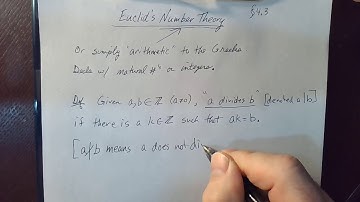 Euclid's Number Theory
§4.3
Or simply "arithmetic" to the Greeks
Deals w/ natural #s or integers.
Def Given a,b∈ℤ (a≠0), "a divides b" [denoted a|b]
if there is a k∈ℤ such that ak=b.
[a∤b means a does not di